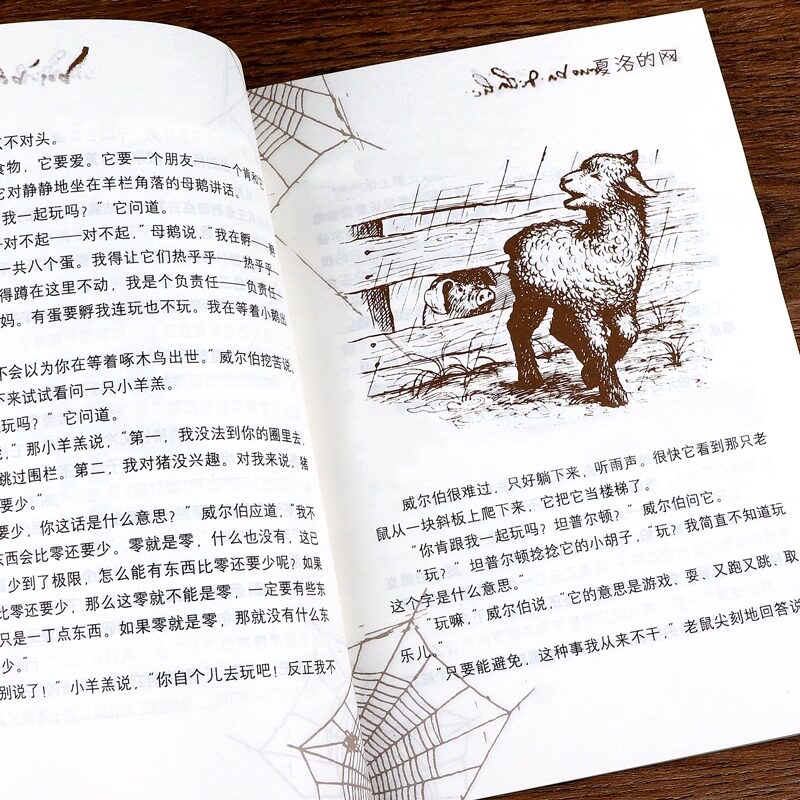 不对头。
食物，它要爱。它要一个朋友——一个肯和它
它对静静地坐在羊栏角落的母鹅讲话。
我一起玩吗？”它问道。
对不起——对不起，”母鹅说，“我在孵——孵
一共八个蛋。我得让它们热乎乎——热乎乎—
得蹲在这里不动，我是个负责任——负责任—
妈。有蛋要孵我连玩也不玩。我在等着小鹅出
不会以为你在等着啄木鸟出世。”威尔伯挖苦说。
下来试试看问一只小羊羔。
玩吗？”它问道。
，”那小羊羔说，“第一，我没法到你的圈里去，
跳过围栏。第二，我对猪没兴趣。对我来说，猪
要少。”
要少，你这话是什么意思？”威尔伯应道，“我不
东西会比零还要少。零就是零，什么也没有，这已
少到了极限，怎么能有东西比零还要少呢？如果
比零还要少，那么这零就不能是零，一定要有些东
只是一丁点东西。如果零就是零，那就没有什么东
少。”
别说了！”小羊羔说，“你自个儿去玩吧！反正我不
夏洛的网
威尔伯很难过，只好躺下来，听雨声。很快它看到那只老
鼠从一块斜板上爬下来，它把它当楼梯了。
“你肯跟我一起玩吗？坦普尔顿？”威尔伯问它。
“玩？”坦普尔顿捻捻它的小胡子，“玩？我简直不知道玩
这个字是什么意思。”
“玩嘛，”威尔伯说，“它的意思是游戏、耍、又跑又跳、取
乐儿。”
“只要能避免，这种事我从来不干，”老鼠尖刻地回答说